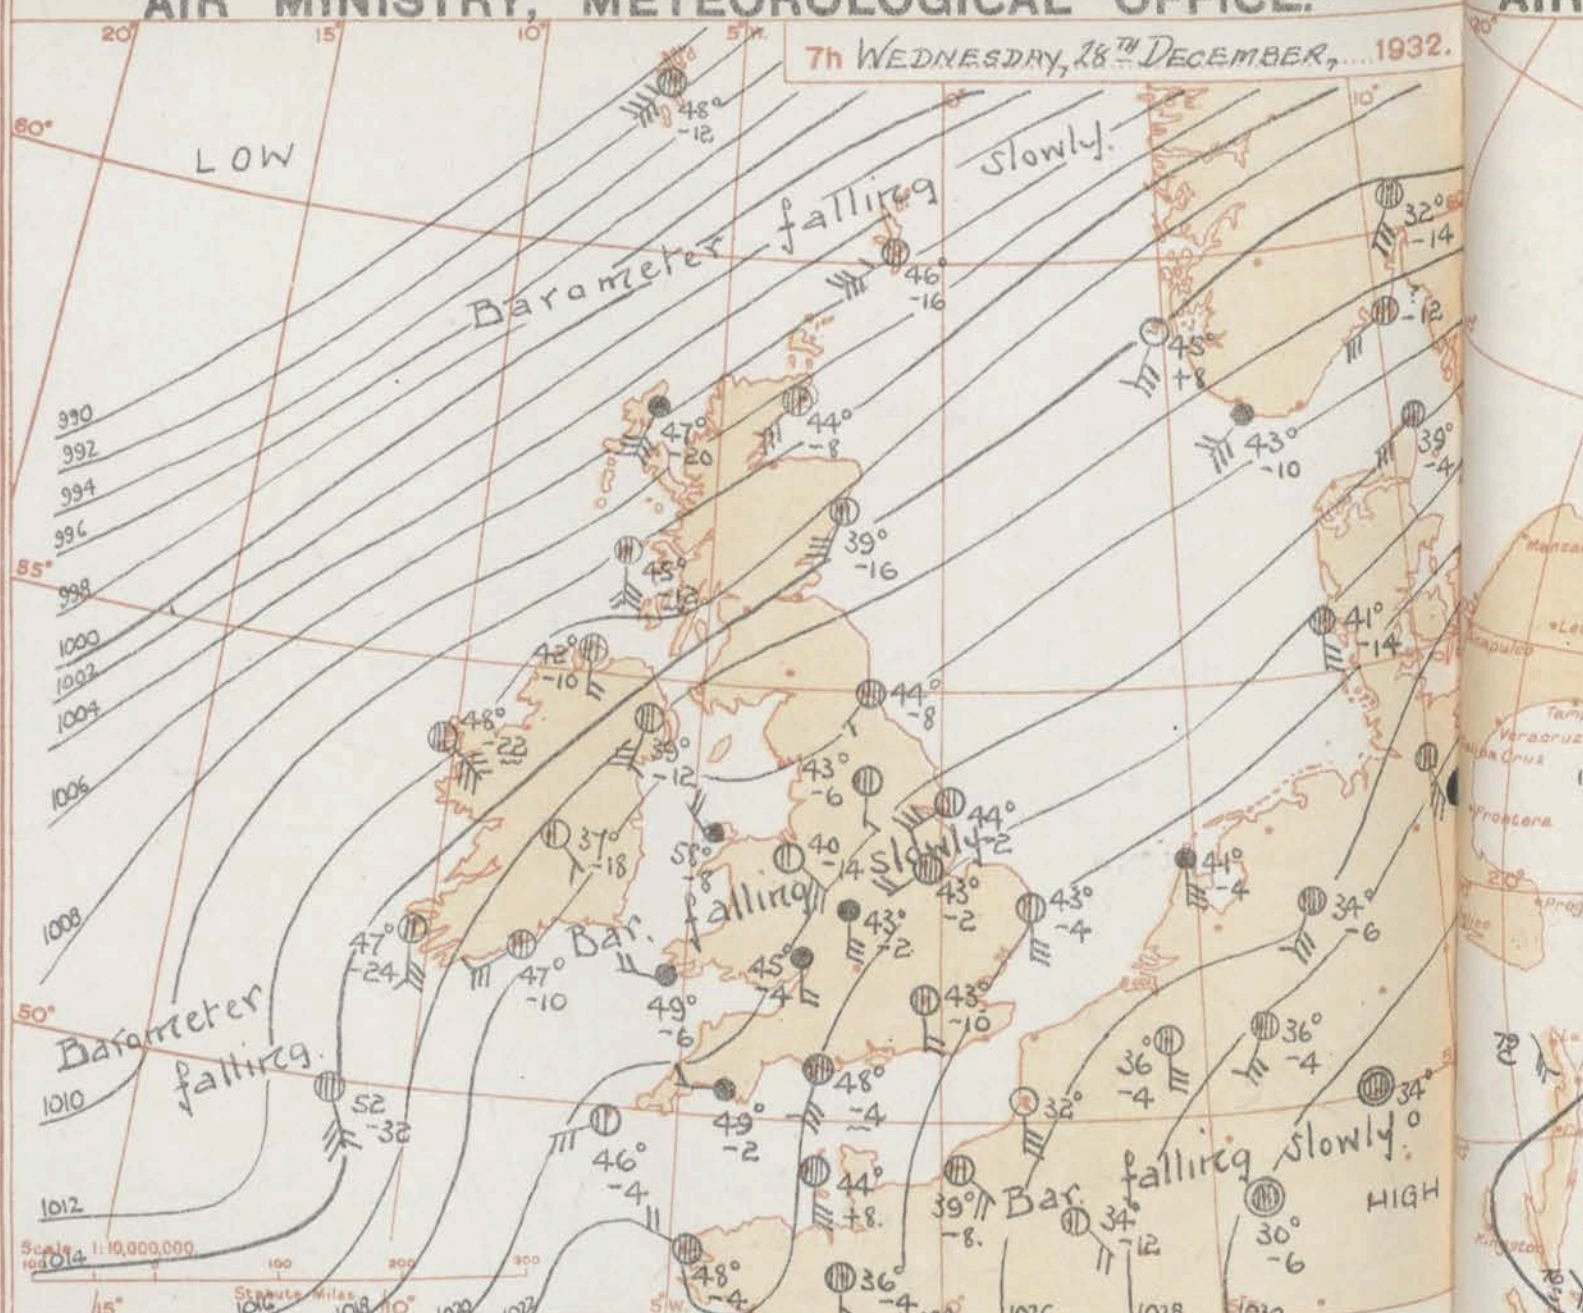 AIR MINISTRY, METEOROLOGICAL OFFICE.
7h WEDNESDAY, 28TH DECEMBER, 1932.
20° 15° 10° 5°W. 0° 10°
60°
LOW
48°
-12
Barometer falling slowly.
46°
-16
32°
-14
-12
45°
+8
43°
-10
39°
-4
47°
-20
44°
-8
990
992
994
996
998
1000
1002
1004
1006
1008
1010
1012
1014
55°
45°
-12
39°
-16
41°
-14
42°
-10
48°
-22
35°
-12
44°
-8
43°
-6
44°
-2
37°
-18
58°
-8
40
-14
43°
-2
41°
-4
Bar. falling slowly
43°
-2
43°
-4
34°
-6
47°
-24
47°
-10
45°
-4
49°
-6
43°
-10
50°
Barometer
falling.
52
-32
36°
-4
36°
-4
34°
48°
-4
49°
-2
32°
46°
-4
44°
+8.
39°
-8.
Bar. falling slowly.
34°
-12
30°
-6
HIGH
48°
-4
36°
-4
Scale 1:10,000,000.
100 0 100 200 300
Statute Miles
15° 10° 5°W. 0°
1016 1018 1020 1022 1026 1028 1030
AIR
20°
Manzan
Acapulco
Veracruz
Frontera
20°
Prog
Kingston